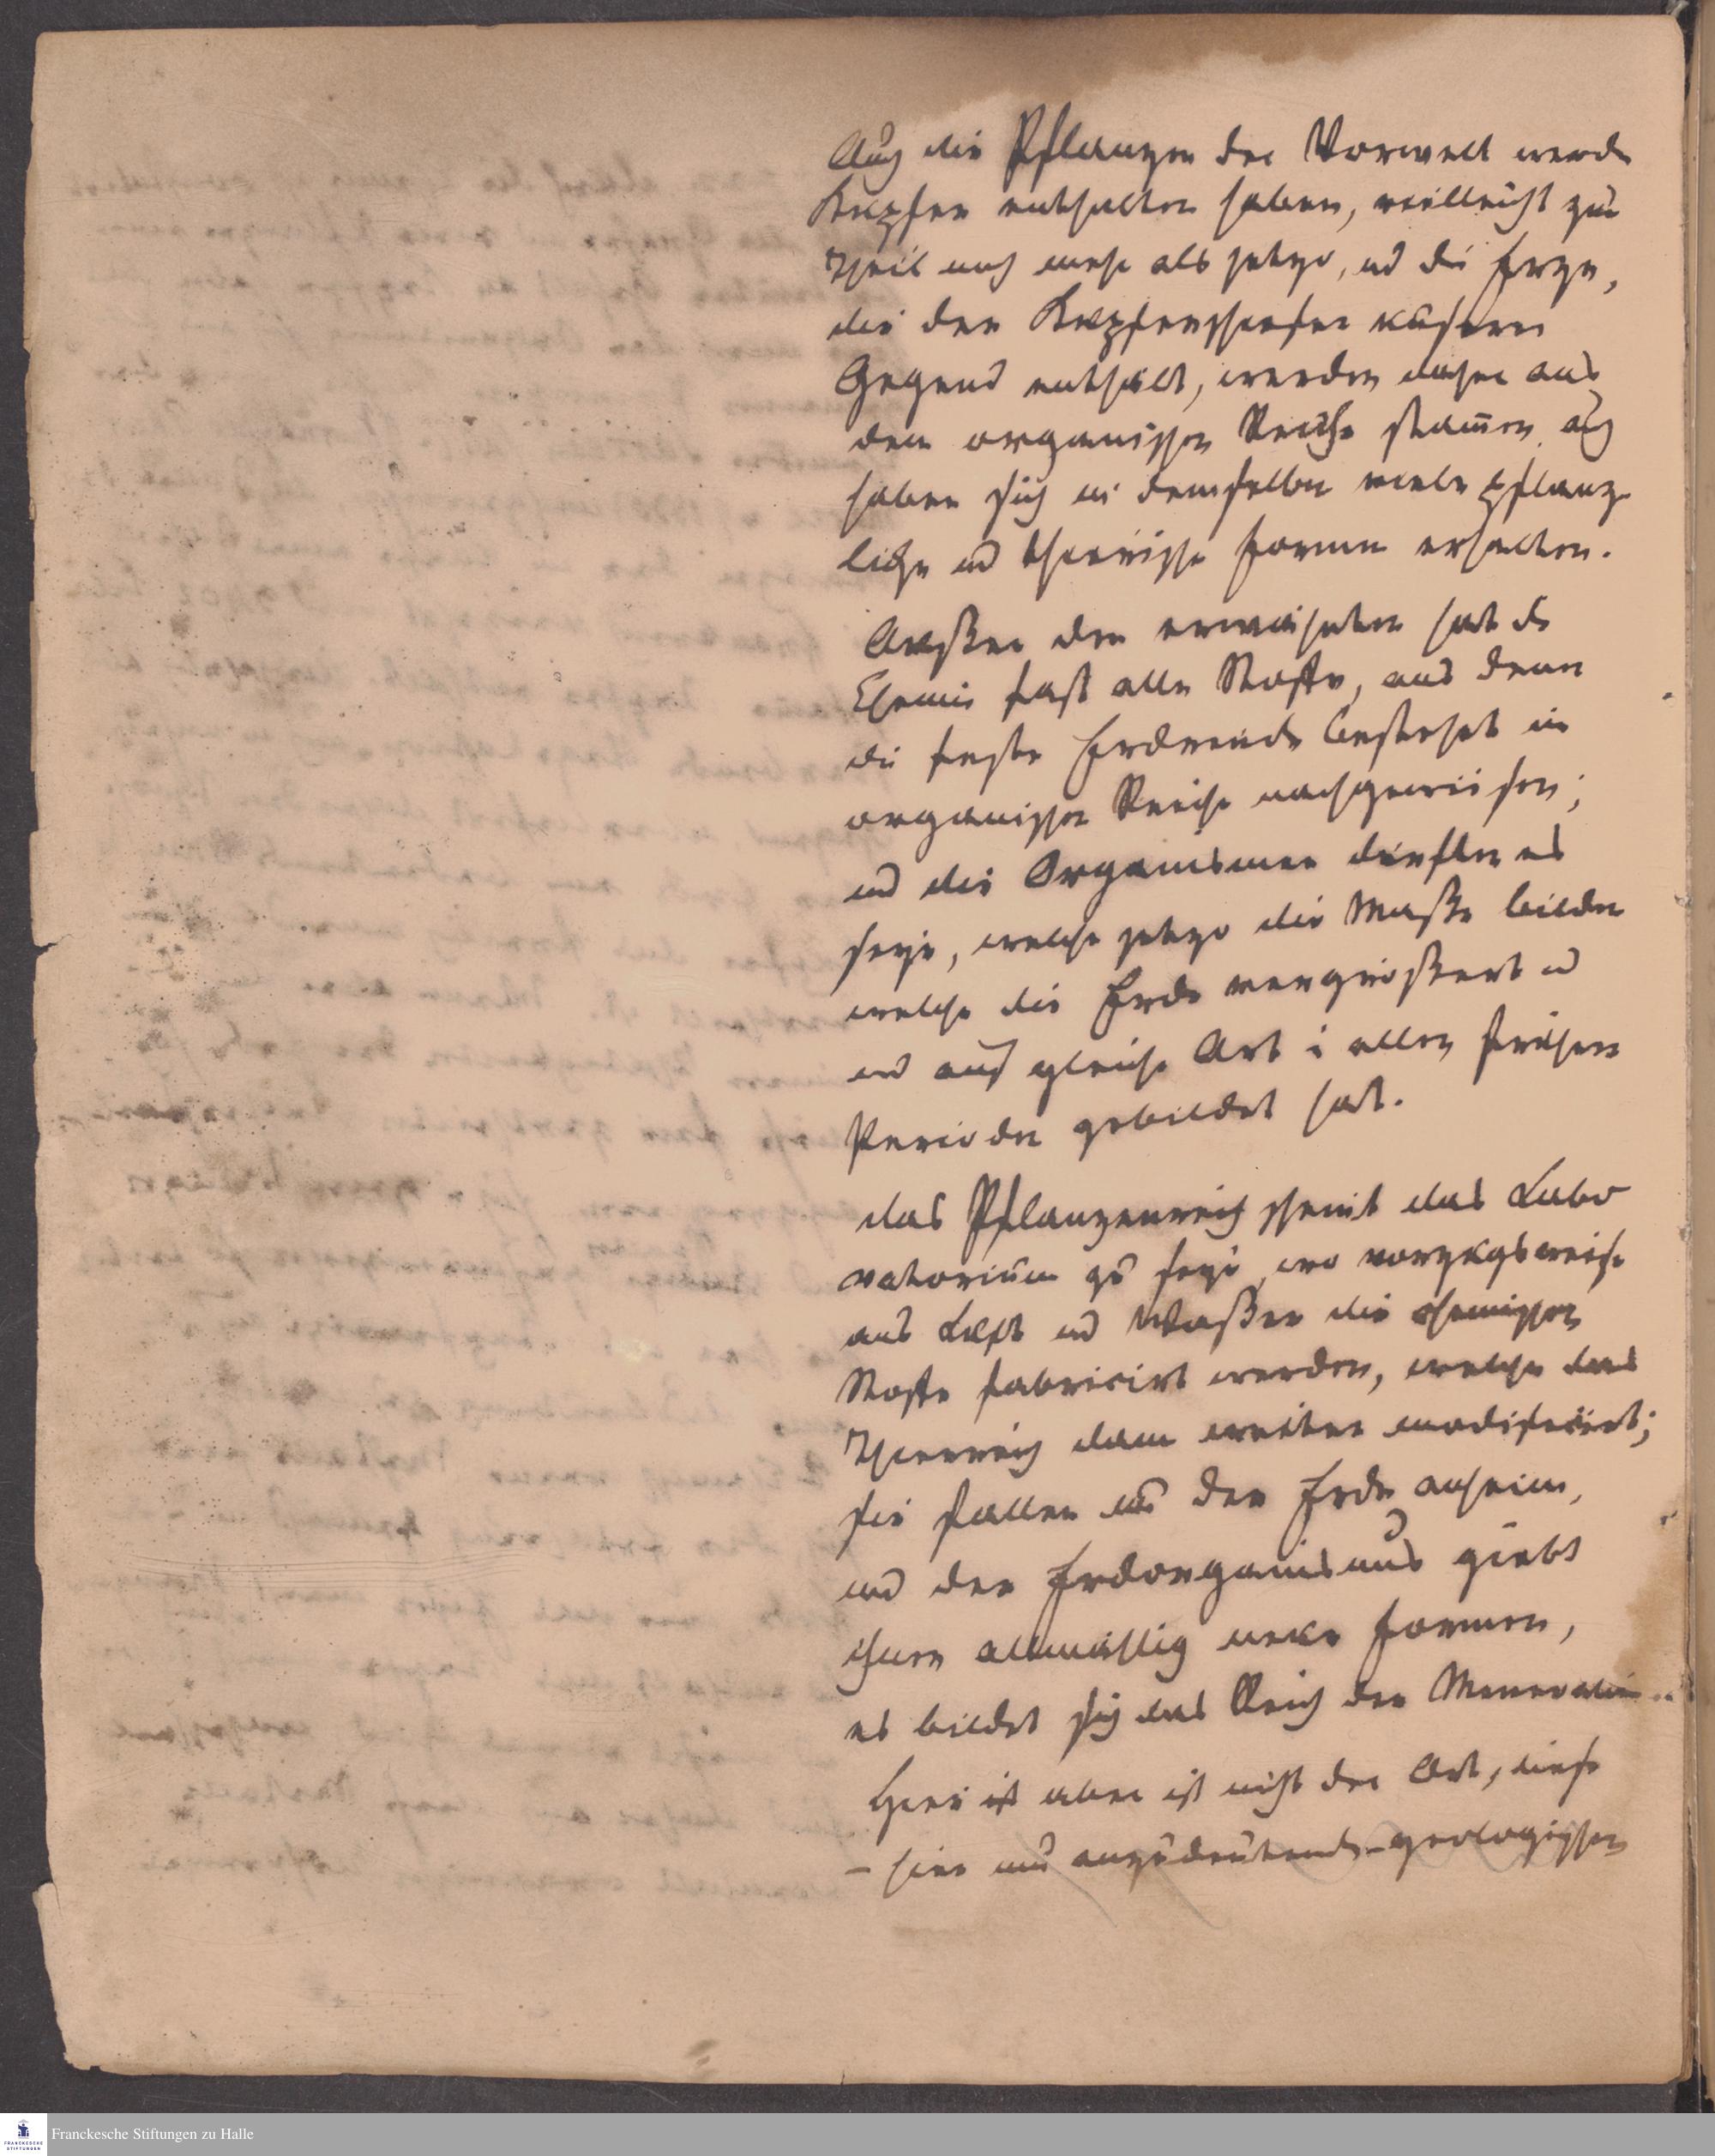 Auch die Pflanzen der Vorwelt werde
Kupfer enthalten haben, vielleicht zum
Theil noch mehr als jetzo, und die Erze,
die der Kupferschiefer unserer
Gegend enthält, werden daher aus
dem organischen Reiche stammen, auch
haben sich in demselben viele pflanz-
liche und thierische Formen erhalten.
Außer den erwähnten hat die
Chemie fast alle Stoffe, aus denen
die feste Erdrinde bestehet im
organischen Reiche nachgewiesen;
und die Organismen dürften es
seyn, welche jetzo die Maße bilden
welche die Erde vergrößert
und auf gleiche Art i allen frühern
Perioden gebildet hat.
das Pflanzenreich scheint das Labo
ratorium zu seyn, wo vorzugsweise
aus Luft und Waßer die chemischen
Stoffe fabricirt werden, welche das
Thierreich dann weiter modificirt;
sie fallen nun der Erde anheim,
und der Erdorganismus giebt
ihnen allmählig neue Formen,
es bildet sich das Reich der Mineralien.
Hier ist aber ist nicht der Ort, diese
– hier nur anzudeutende – geologischen
Franckesche Stiftungen zu Halle
FRANCKESCHE
STIFTUNGEN